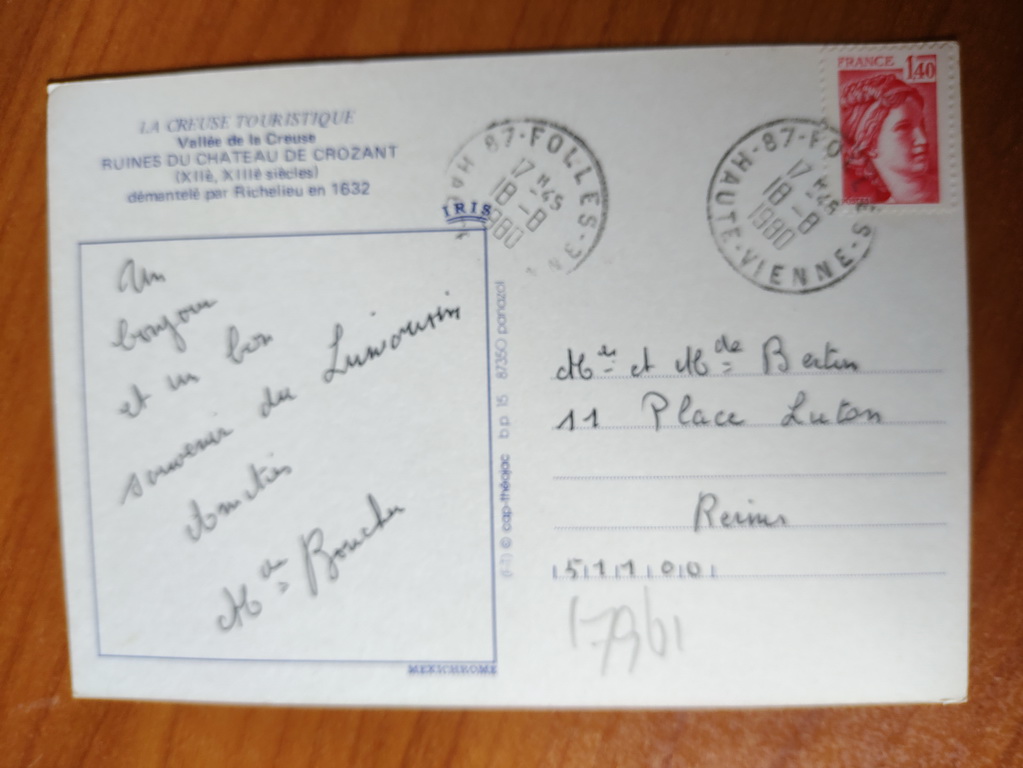 LA CREUSE TOURISTIQUE
Vallée de la Creuse
RUINES DU CHATEAU DE CROZANT
(XIIè, XIIIè siècles)
démantelé par Richelieu en 1632
IRIS
87-FOLLES-
17 H45
18-8
1980
87-FO
17 H45
18-8
1980
HAUTE-VIENNE
FRANCE 1,40
Un
bonjour
et un bon
souvenir du Limousin
Amitiés
Mde Boucher
(I-T) © cap-théojac b.p. 15 87350 panazol
MEXICHROME
Mr et Mde Bertin
11 Place Luton
Reims
51100
17961